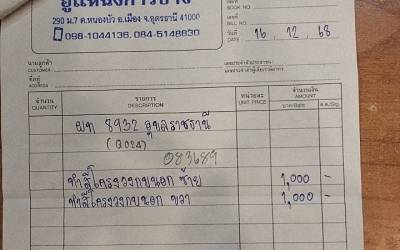 อู่แหนงการช่าง
290 ม.7 ต.หนองบัว อ.เมือง จ.อุดรธานี 41000
098-1044136, 084-5148830
BOOK NO.
เลขที่
BILL NO.
วันที่
DATE 16 / 12 / 68
นามลูกค้า
CUSTOMER
เลขประจำตัวประชาชน
ที่อยู่
ADDRESS
จำนวน
QUANTITY
รายการ
DESCRIPTION
หน่วยละ
UNIT PRICE
จำนวนเงิน
AMOUNT
ผท 8932 อุบลราชธานี
083689
ทำสีโครงวงกบนอก ซ้าย 1,000 -
ทำสีโครงวงกบนอก ขวา 1,000 -